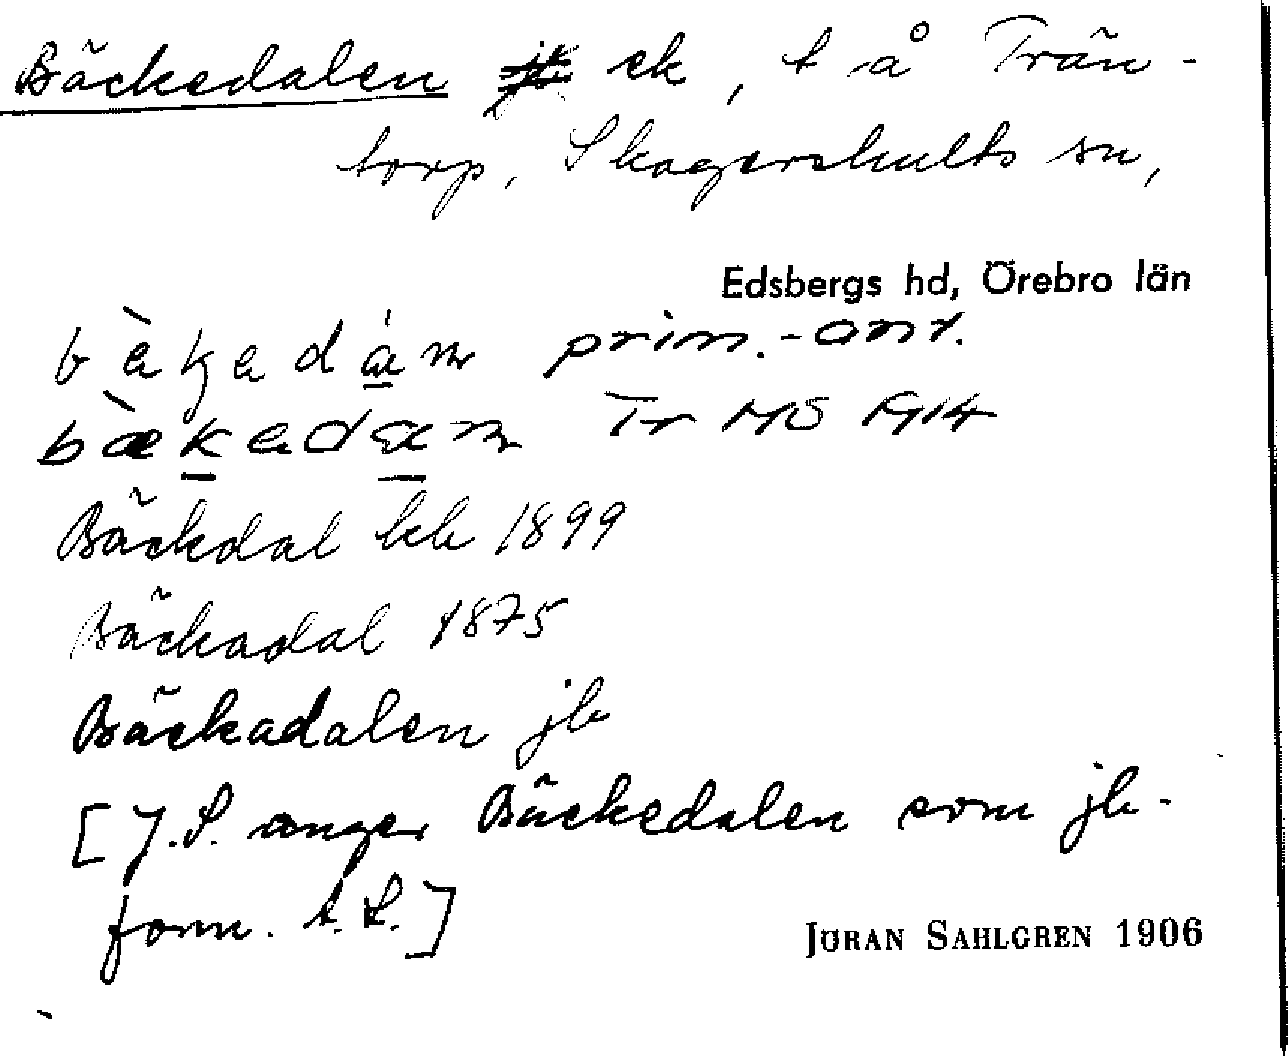 Bäckedalen ek, t å Trän-
torp, Skagershults sn,
Edsbergs hd, Örebro län
prim.-ant.
Tr MÖ 1914
Bäckdal kb 1899
Bäckadal 1875
Bäckadalen jb
[J.S. anger Bäckedalen som jb-
form. S.L.]
JÖRAN SAHLGREN 1906